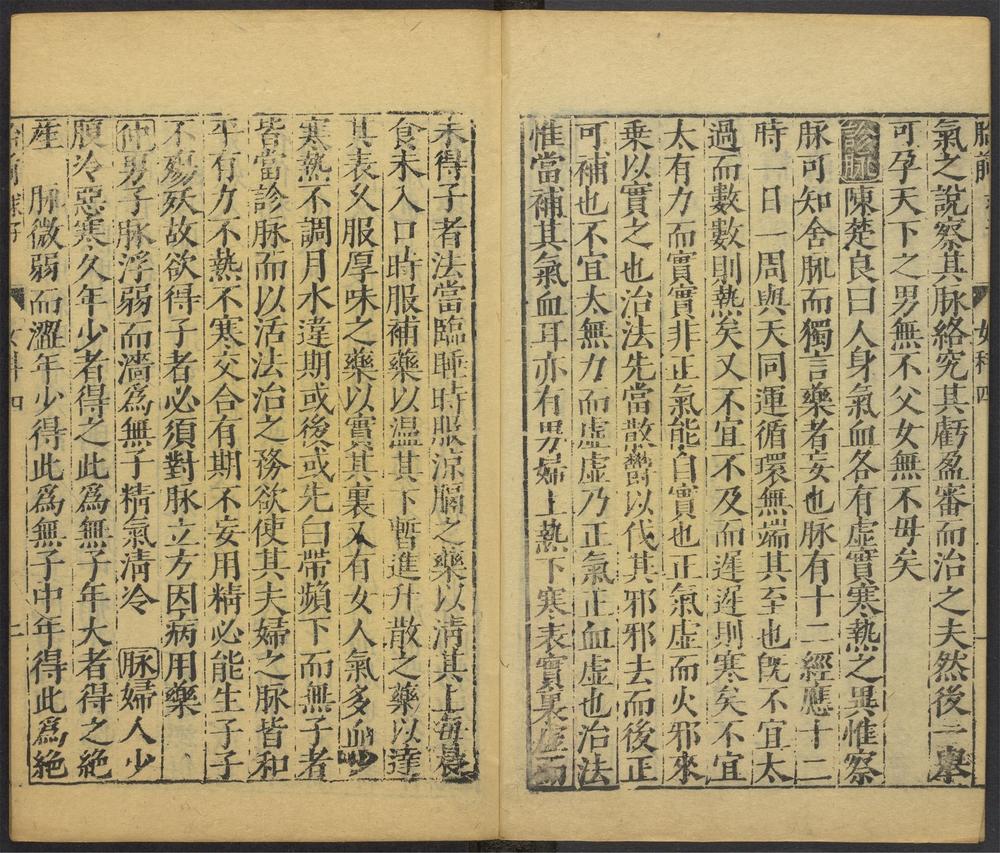 氣之說察其脉絡究其虧盈審而治之夫然後一舉
可孕天下之男無不父女無不毋矣
診脉 陳楚良曰人身氣血各有虛實寒熱之異惟察
脉可知舍脉而獨言藥者妄也脉有十二經應十二
時一日一周與天同運循環無端其至也旣不宜太
過而數數則熱矣又不宜不及而遲遲則寒矣不宜
太有力而實實非正氣能自實也正氣虛而火邪來
乗以實之也治法先當散欝以伐其邪邪去而後正
可補也不宜太無力而虛虛乃正氣正血虛也治法
惟當補其氣血耳亦有男婦上熱下寒表實裏虛而
未得子者法當臨睡時服涼膈之藥以清其上每晨
食未入口時服補藥以温其下暫進升散之藥以達
其表久服厚味之藥以實其裏又有女人氣多血少
寒熱不調月水違期或後或先白帶頻下而無子者
皆當診脉而以活法治之務欲使其夫婦之脉皆和
平有力不熱不寒交合有期不妄用精必能生子子
不殤殀故欲得子者必須對脉立方因病用藥
仲 男子脉浮弱而濇爲無子精氣清冷 脉 婦人少
腹冷惡寒久年少者得之此爲無子年大者得之絶
産 脉微弱而澀年少得此爲無子中年得此爲絶
女科 四